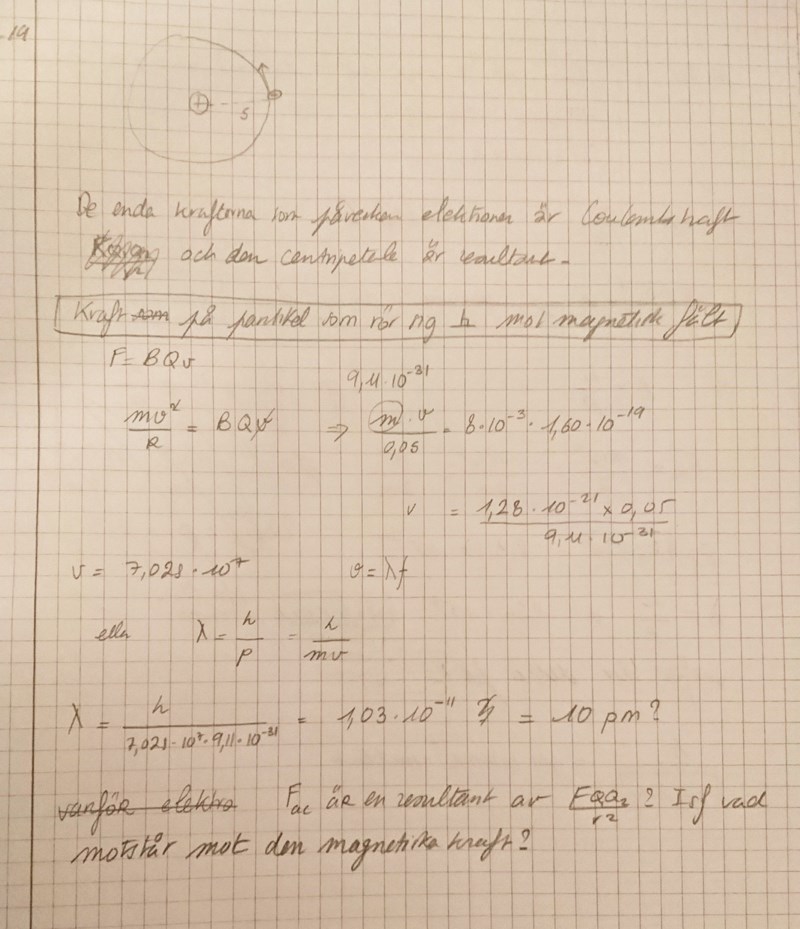 19
+
5
De enda krafterna som påverkan elektronen är Coulombs kraft
och den centripetala är resultant.
Kraft som på partikel som rör sig ⊥ mot magnetisk fält
F = BQv
9,11·10⁻³¹
mv²/R = BQv ⇒ m·v/0,05 = 8·10⁻³·1,60·10⁻¹⁹
v = 1,28·10⁻²¹ × 0,05 / 9,11·10⁻³¹
v = 7,025·10⁷ v = λf
eller λ = h/p = h/mv
λ = h / 7,025·10⁷·9,11·10⁻³¹ = 1,03·10⁻¹¹ = 10 pm?
varför elektro Fac är en resultant av FQQ₂/r² ? Isf vad
motstår mot den magnetiska kraft?